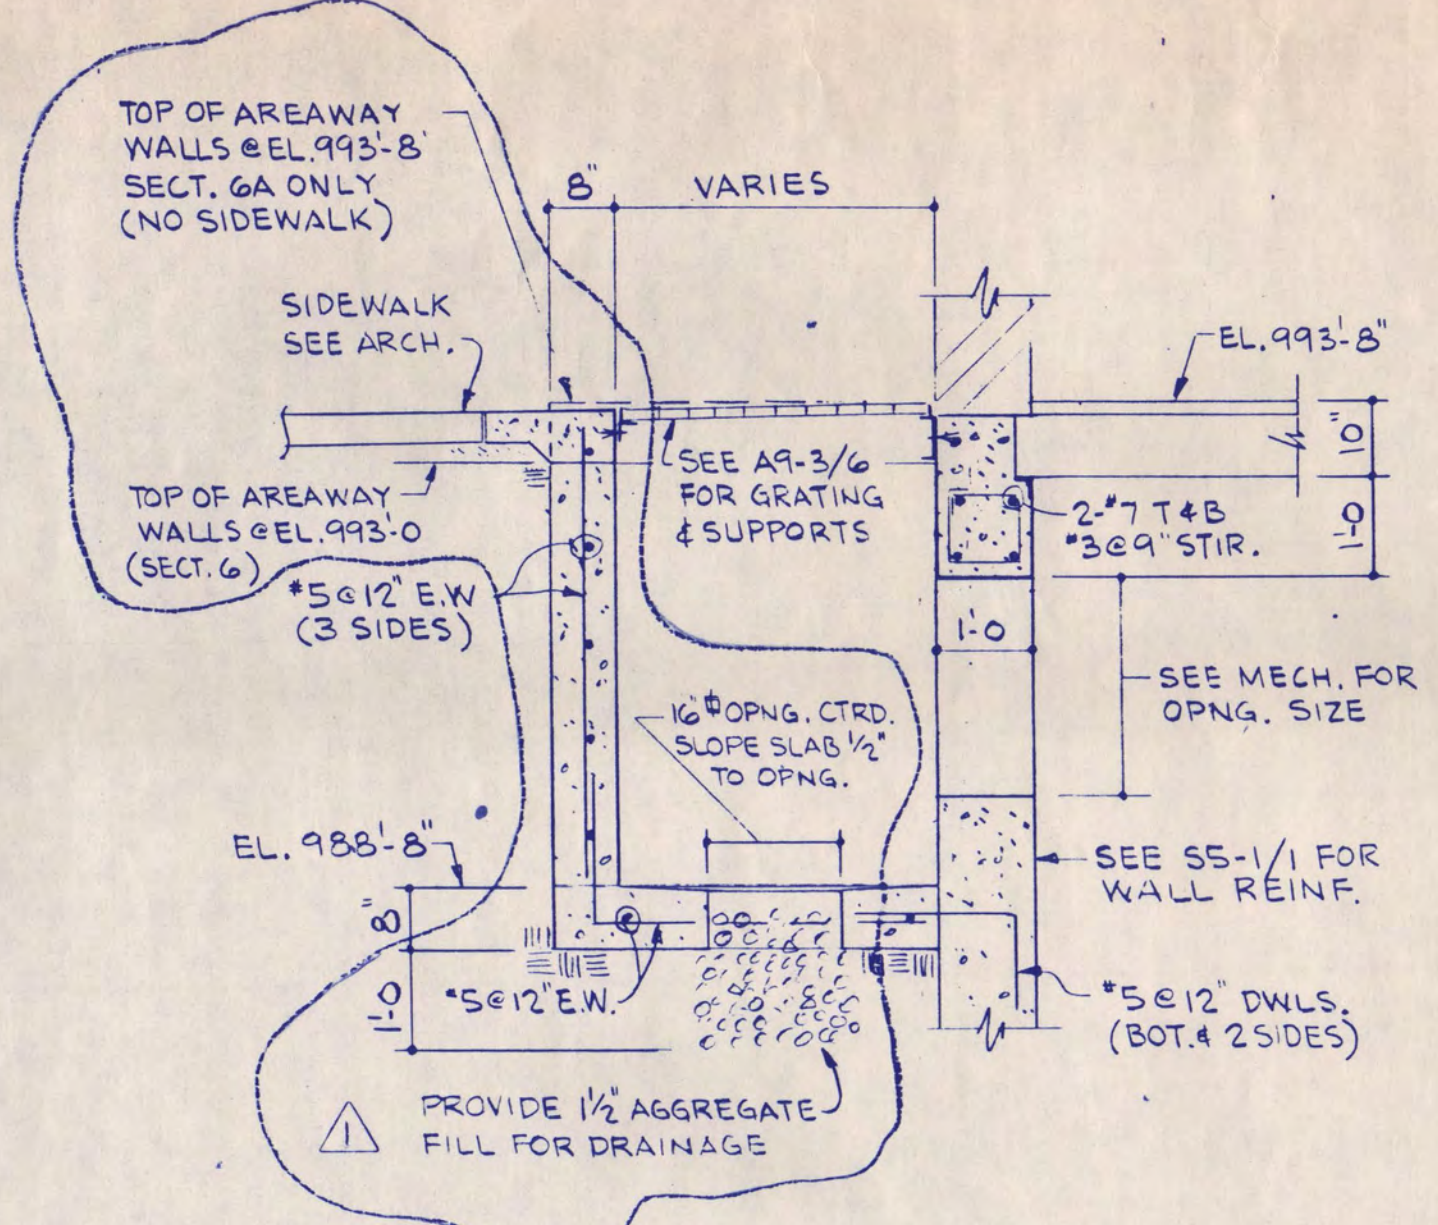 TOP OF AREAWAY
WALLS @ EL. 993'-8"
SECT. 6A ONLY
(NO SIDEWALK)
8"
VARIES
SIDEWALK
SEE ARCH.
EL. 993'-8"
SEE A9-3/6
FOR GRATING
& SUPPORTS
10"
TOP OF AREAWAY
WALLS @ EL. 993'-0
(SECT. 6)
2-#7 T & B
#3 @ 9" STIR.
1'-0
#5 @ 12" E.W
(3 SIDES)
1'-0
SEE MECH. FOR
OPNG. SIZE
16" OPNG. CTRD.
SLOPE SLAB 1/2"
TO OPNG.
EL. 988'-8"
SEE S5-1/1 FOR
WALL REINF.
8"
1'-0
#5 @ 12" E.W.
#5 @ 12" DWLS.
(BOT. & 2 SIDES)
1
PROVIDE 1 1/2" AGGREGATE
FILL FOR DRAINAGE